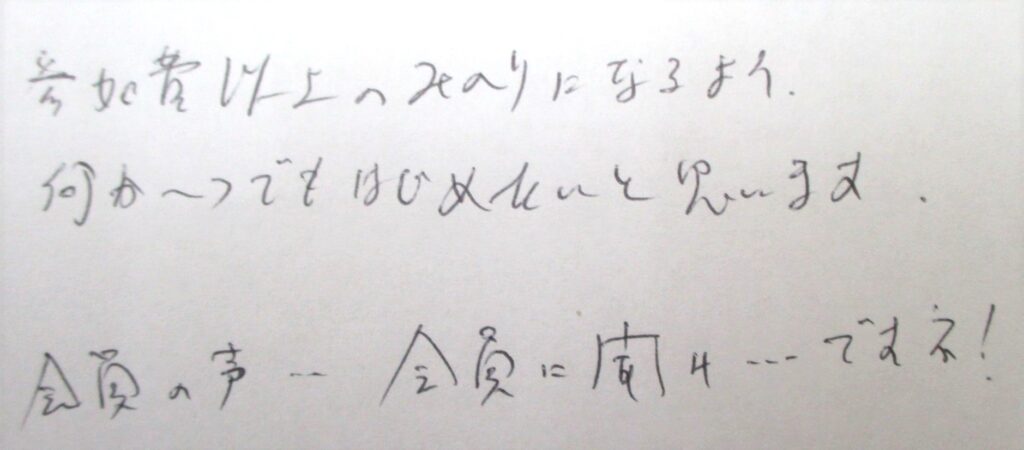 参加費以上のみのりになるよう.
何か一つでもはじめたいと思います.
会員の声… 会員に聞け…ですネ!